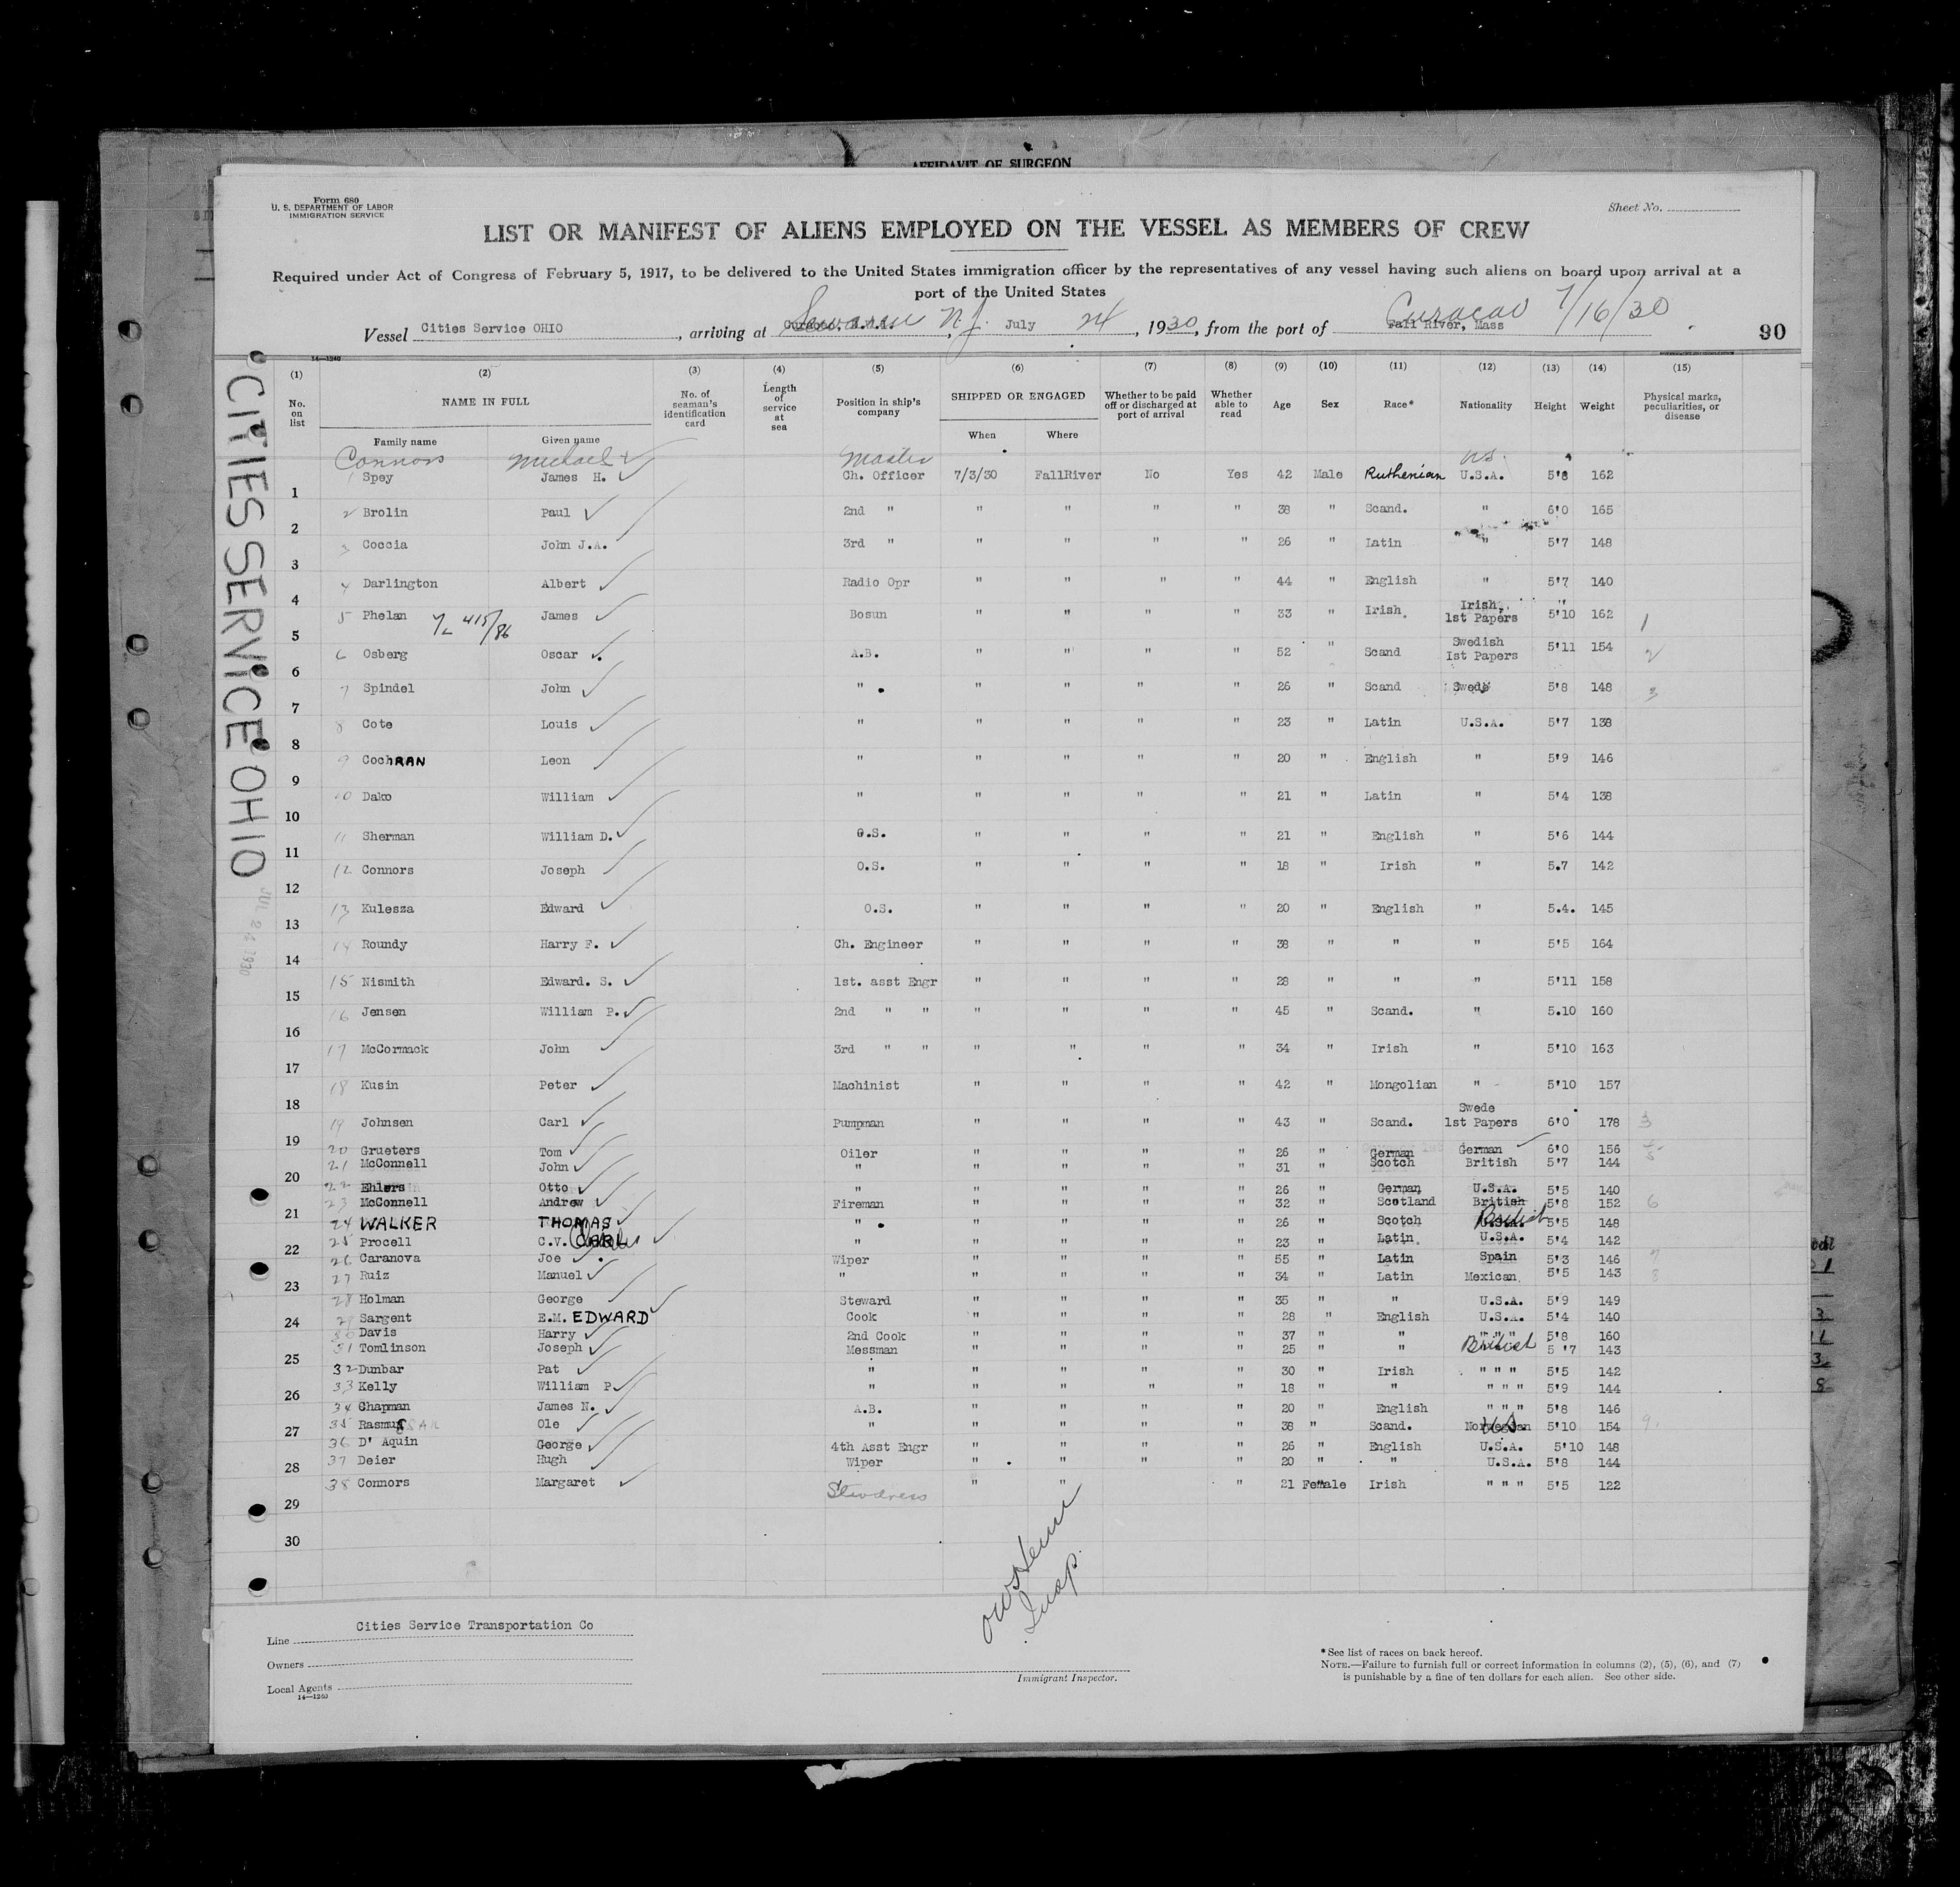 AFFIDAVIT OF SURGEON
Form 680
U. S. DEPARTMENT OF LABOR
IMMIGRATION SERVICE
Sheet No.
LIST OR MANIFEST OF ALIENS EMPLOYED ON THE VESSEL AS MEMBERS OF CREW
Required under Act of Congress of February 5, 1917, to be delivered to the United States immigration officer by the representatives of any vessel having such aliens on board upon arrival at a
port of the United States
Vessel Cities Service OHIO, arriving at Sewaren N.J. July 24, 1930, from the port of Fall River, Mass Curacao 7/16/30
90
14—1240
CITIES SERVICE OHIO
JUL 24 1930
(1) (2) (3) (4) (5) (6) (7) (8) (9) (10) (11) (12) (13) (14) (15)
No. on list NAME IN FULL No. of seaman's identification card Length of service at sea Position in ship's company SHIPPED OR ENGAGED Whether to be paid off or discharged at port of arrival Whether able to read Age Sex Race* Nationality Height Weight Physical marks, peculiarities, or disease
Family name Given name When Where
Connors Michael Master U.S.
1 Spey James H. Ch. Officer 7/3/30 FallRiver No Yes 42 Male Ruthenian U.S.A. 5'8 162
1
2 Brolin Paul 2nd " " " " " 38 " Scand. " 6'0 165
2
3 Coccia John J.A. 3rd " " " " " 26 " Latin " 5'7 148
3
4 Darlington Albert Radio Opr " " " " 44 " English " 5'7 140
4
5 Phelan James Bosun " " " " 33 " Irish. Irish, 1st Papers 5'10 162 1
5
6 Osberg Oscar A.B. " " " " 52 " Scand Swedish 1st Papers 5'11 154 2
6
7 Spindel John " " " " " 26 " Scand Swede 5'8 148 3
7
8 Cote Louis " " " " " 23 " Latin U.S.A. 5'7 138
8
9 CochRAN Leon " " " " " 20 " English " 5'9 146
9
10 Dako William " " " " " 21 " Latin " 5'4 138
10
11 Sherman William D. O.S. " " " " 21 " English " 5'6 144
11
12 Connors Joseph O.S. " " " " 18 " Irish " 5.7 142
12
13 Kulesza Edward O.S. " " " " 20 " English " 5.4. 145
13
14 Roundy Harry F. Ch. Engineer " " " " 38 " " " 5'5 164
14
15 Nismith Edward. S. 1st. asst Engr " " " " 28 " " " 5'11 158
15
16 Jensen William P. 2nd " " " " " " 45 " Scand. " 5.10 160
16
17 McCormack John 3rd " " " " " " 34 " Irish " 5'10 163
17
18 Kusin Peter Machinist " " " " 42 " Mongolian " 5'10 157
18
19 Johnsen Carl Pumpman " " " " 43 " Scand. Swede 1st Papers 6'0 178 3
19
20 Grueters Tom Oiler " " " " 26 " German German 6'0 156 5
21 McConnell John " " " " " 31 " Scotch British 5'7 144
20
22 Ehlers Otto " " " " " 26 " German U.S.A. 5'5 140
23 McConnell Andrew Fireman " " " " 32 " Scotland British 5'8 152 6
21
24 WALKER THOMAS " " " " " 26 " Scotch U.S.A. British 5'5 148
25 Procell C.V. CARL Charles " " " " " 23 " Latin U.S.A. 5'4 142
22
26 Caranova Joe Wiper " " " " 55 " Latin Spain 5'3 146 7
27 Ruiz Manuel " " " " " 34 " Latin Mexican 5'5 143 8
23
28 Holman George Steward " " " " 35 " " U.S.A. 5'9 149
29 Sargent E.M. EDWARD Cook " " " " 28 " English U.S.A. 5'4 140
24
30 Davis Harry 2nd Cook " " " " 37 " " " " " 5'8 160
31 Tomlinson Joseph Messman " " " " 25 " " British 5'7 143
25
32 Dunbar Pat " " " " " 30 " Irish " " " 5'5 142
33 Kelly William P. " " " " " 18 " " " " " 5'9 144
26
34 Chapman James N. A.B. " " " " 20 " English " " " 5'8 146
35 Rasmus Ole " " " " " 38 " Scand. Norwegian U.S. 5'10 154 9.
27
36 D' Aquin George 4th Asst Engr " " " " 26 " English U.S.A. 5'10 148
37 Deier Hugh Wiper " " " " 20 " " U.S.A. 5'8 144
28
38 Connors Margaret Stewdress " " " 21 Female Irish " " " 5'5 122
29
30
Insp.
Line Cities Service Transportation Co
Owners
Local Agents
14—1240
Immigrant Inspector.
*See list of races on back hereof.
NOTE.—Failure to furnish full or correct information in columns (2), (5), (6), and (7)
is punishable by a fine of ten dollars for each alien. See other side.